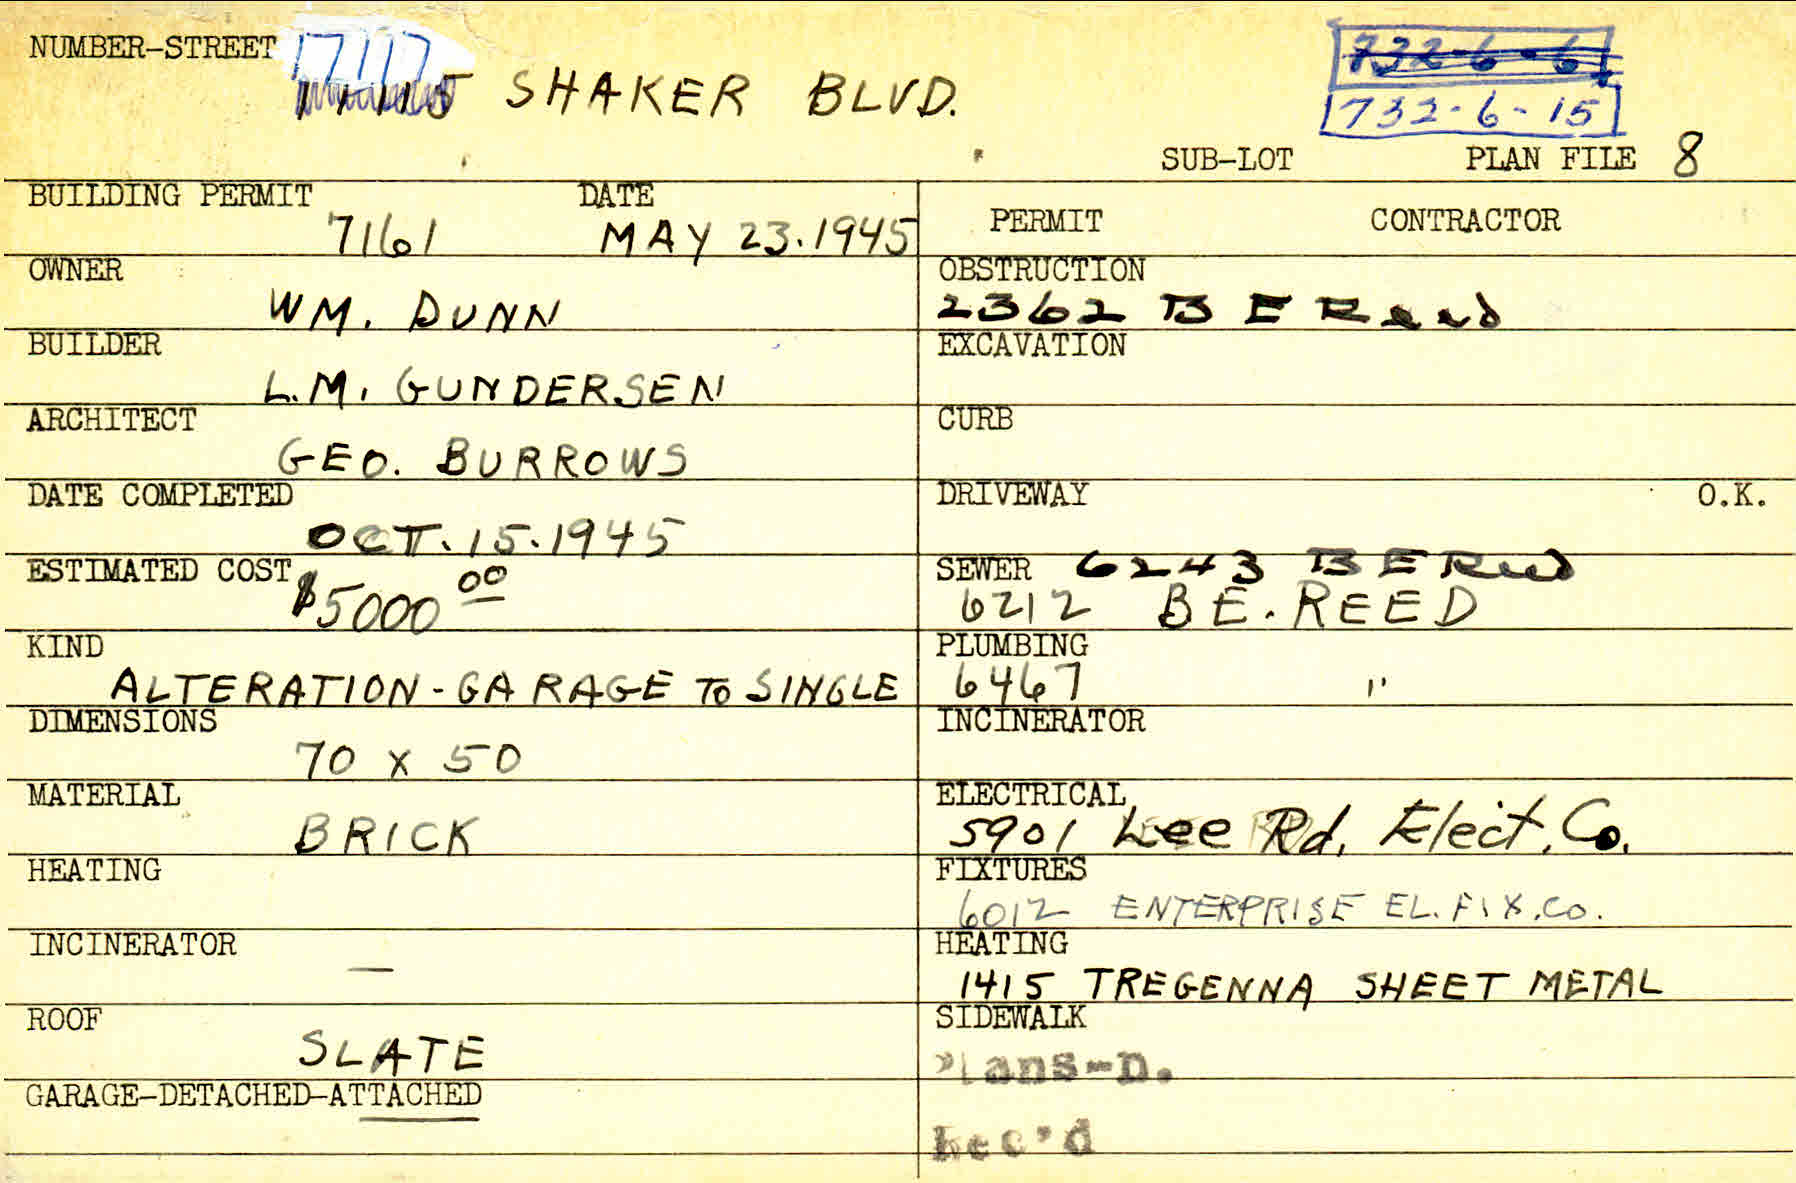 NUMBER-STREET 17117 SHAKER BLVD.
732-6-6
732-6-15
SUB-LOT PLAN FILE 8
BUILDING PERMIT 7161 DATE MAY 23.1945
OWNER
WM. DUNN
BUILDER
L.M. GUNDERSEN
ARCHITECT
GEO. BURROWS
DATE COMPLETED
OCT. 15.1945
ESTIMATED COST $5000 00
KIND
ALTERATION-GARAGE TO SINGLE
DIMENSIONS
70 x 50
MATERIAL
BRICK
HEATING
INCINERATOR
—
ROOF
SLATE
GARAGE-DETACHED-ATTACHED
PERMIT CONTRACTOR
OBSTRUCTION
2362 B E Reed
EXCAVATION
CURB
DRIVEWAY O.K.
SEWER 6243 B E Reed
6212 B E. REED
PLUMBING
6467 "
INCINERATOR
ELECTRICAL
5901 Lee Rd. Elect. Co.
FIXTURES
6012 ENTERPRISE EL. FIX. Co.
HEATING
1415 TREGENNA SHEET METAL
SIDEWALK
Plans-D.
Rec'd